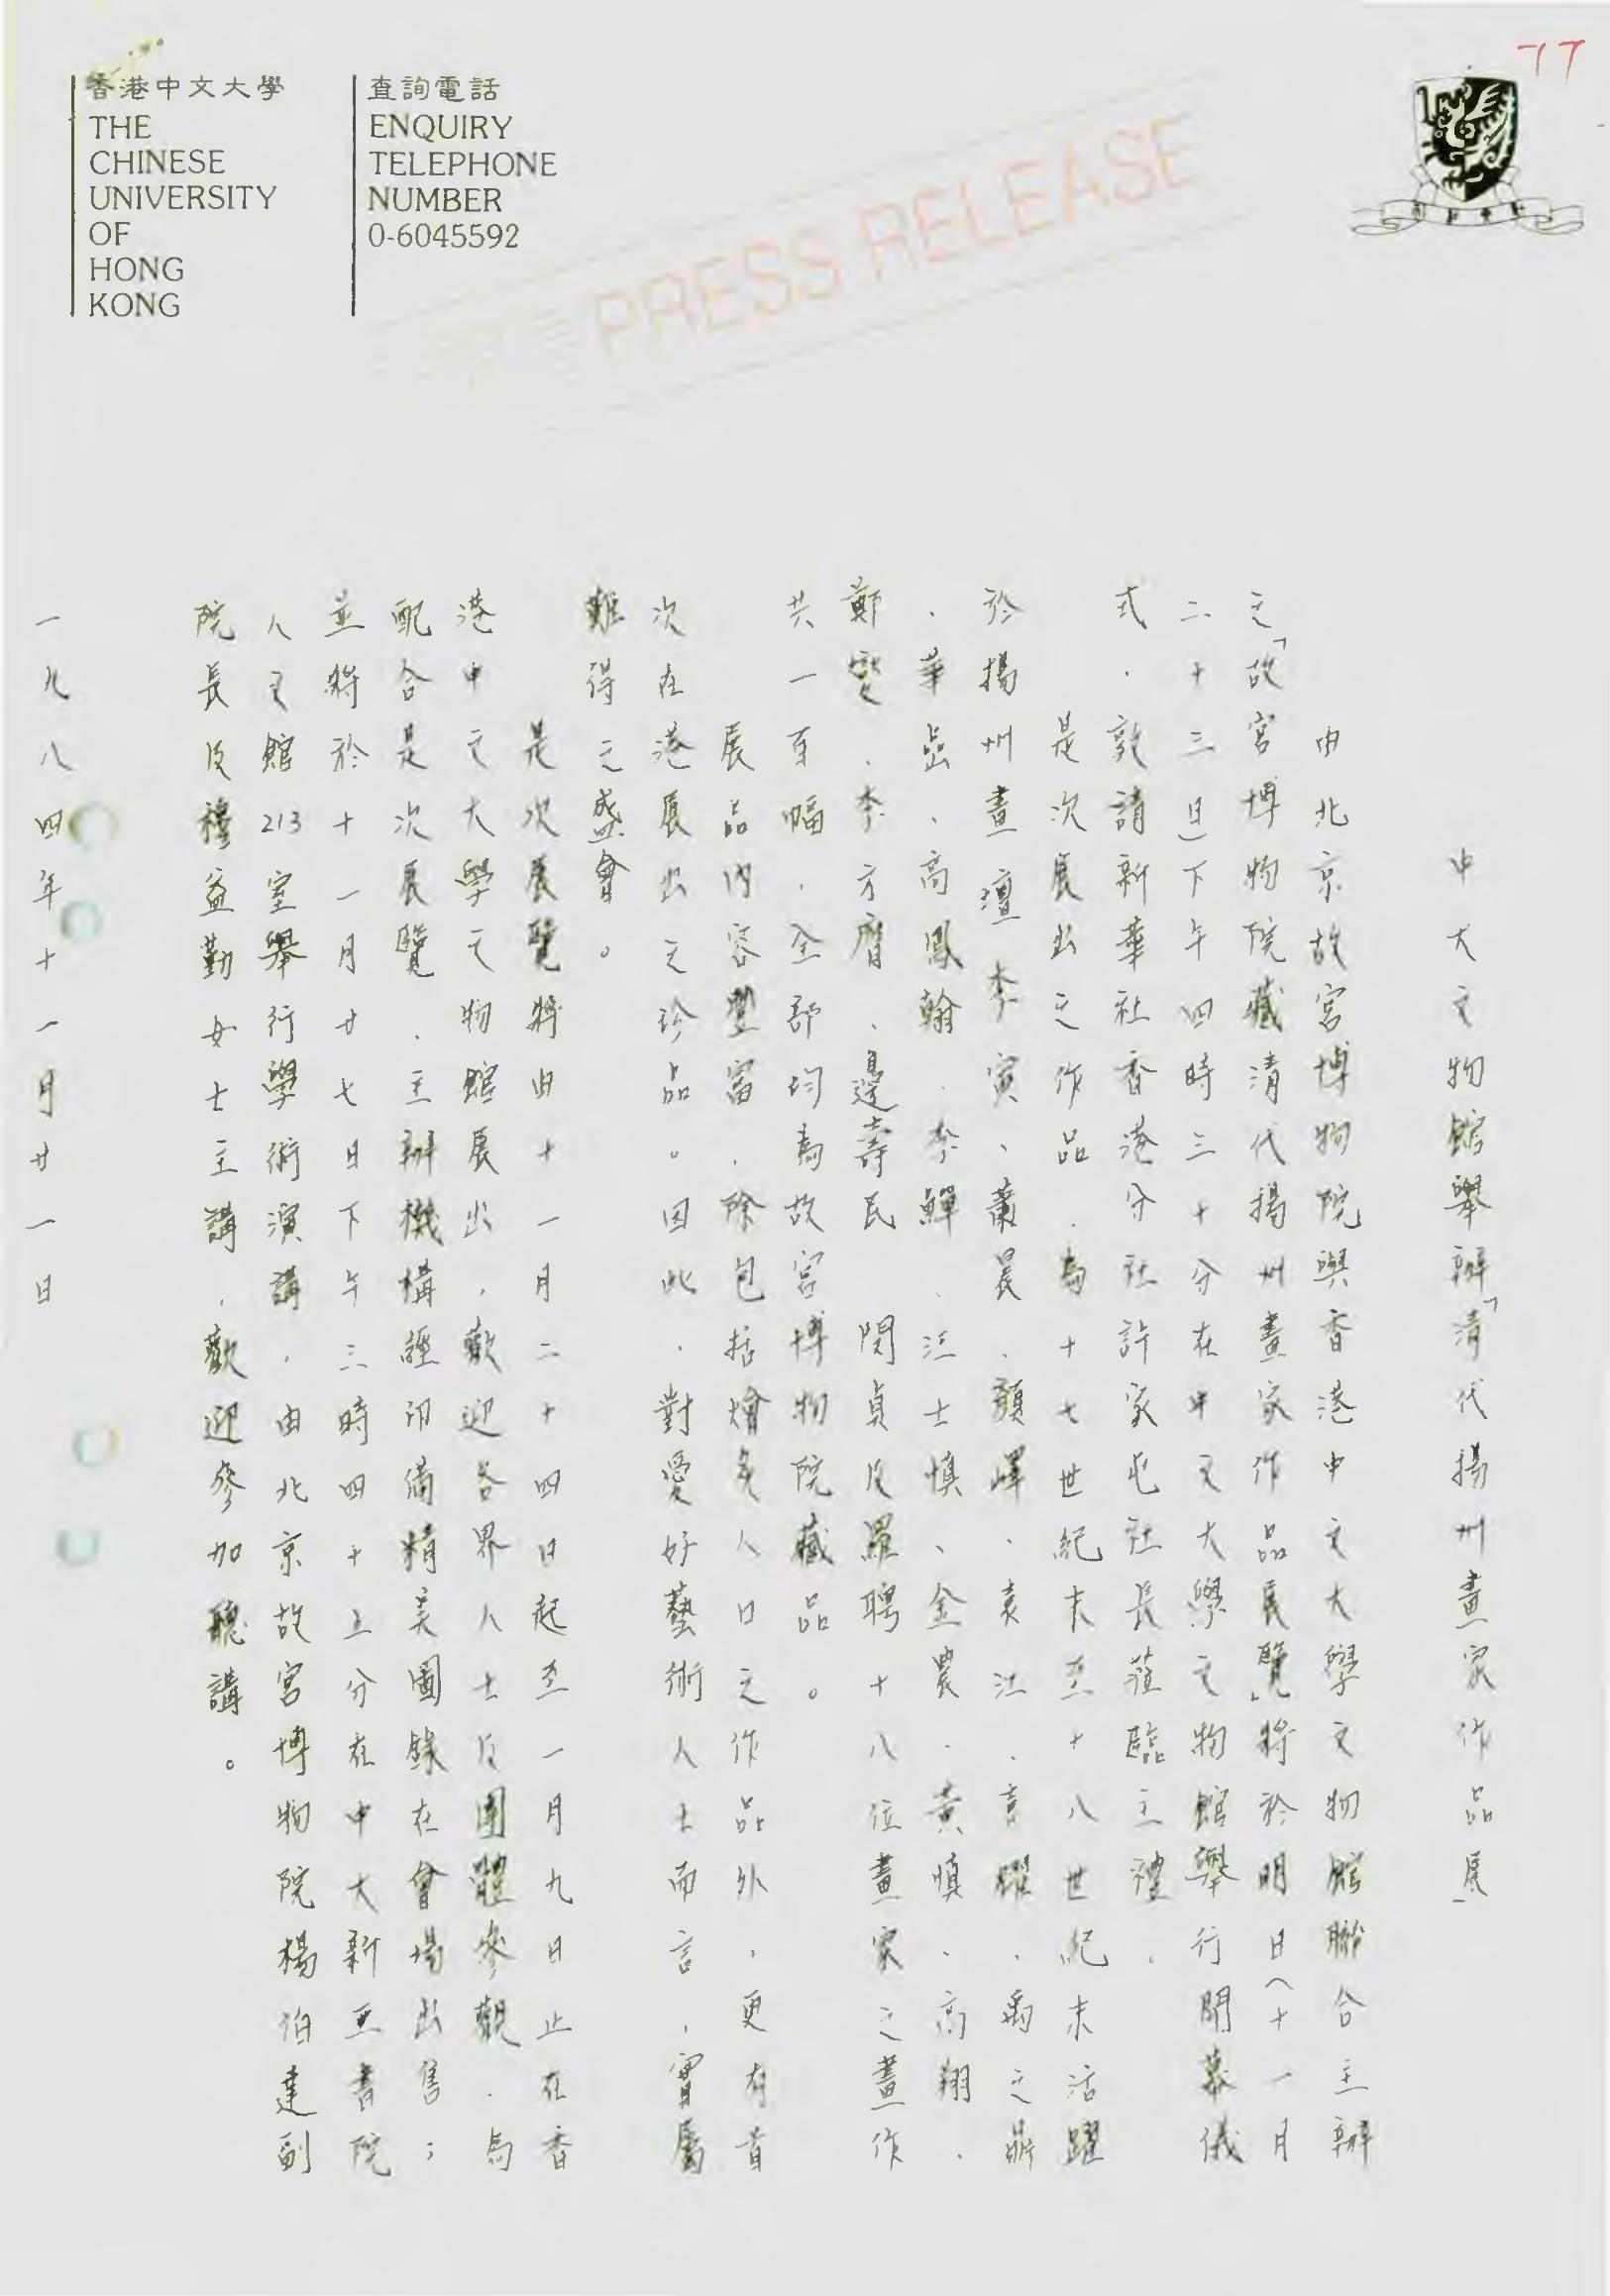 77
香港中文大學
THE
CHINESE
UNIVERSITY
OF
HONG
KONG
查詢電話
ENQUIRY
TELEPHONE
NUMBER
0-6045592
PRESS RELEASE
中大文物館舉辦「清代揚州畫家作品展」
由北京故宮博物院與香港中文大學文物館聯合主辦
之「故宮博物院藏清代揚州畫家作品展覽」將於明日(十一月
二十三日)下午四時三十分在中文大學文物館舉行開幕儀
式,敦請新華社香港分社社許家屯社長蒞臨主禮.
是次展出之作品,為十七世紀末至十八世紀末活躍
於揚州畫壇李寅、蕭晨、顏嶧、袁江、袁耀、禹之鼎
、華嵒、高鳳翰、李鱓、汪士慎、金農、黃慎、高翔、
鄭燮、李方膺、邊壽民 閔貞及羅聘十八位畫家之畫作
共一百幅,全部均為故宮博物院藏品。
展品內容豐富,除包括燴炙人口之作品外,更有首
次在港展出之珍品。因此,對愛好藝術人士而言,實屬
難得之盛會。
是次展覽將由十一月二十四日起至一月九日止在香
港中文大學文物館展出,歡迎各界人士及團體參觀.為
配合是次展覽,主辦機構經印備精美圖錄在會場出售;
並將於十一月廿七日下午三時四十五分在中大新亞書院
人文館213室舉行學術演講,由北京故宮博物院楊伯達副
院長及穆益勤女士主講,歡迎參加聽講。
一九八四年十一月廿一日